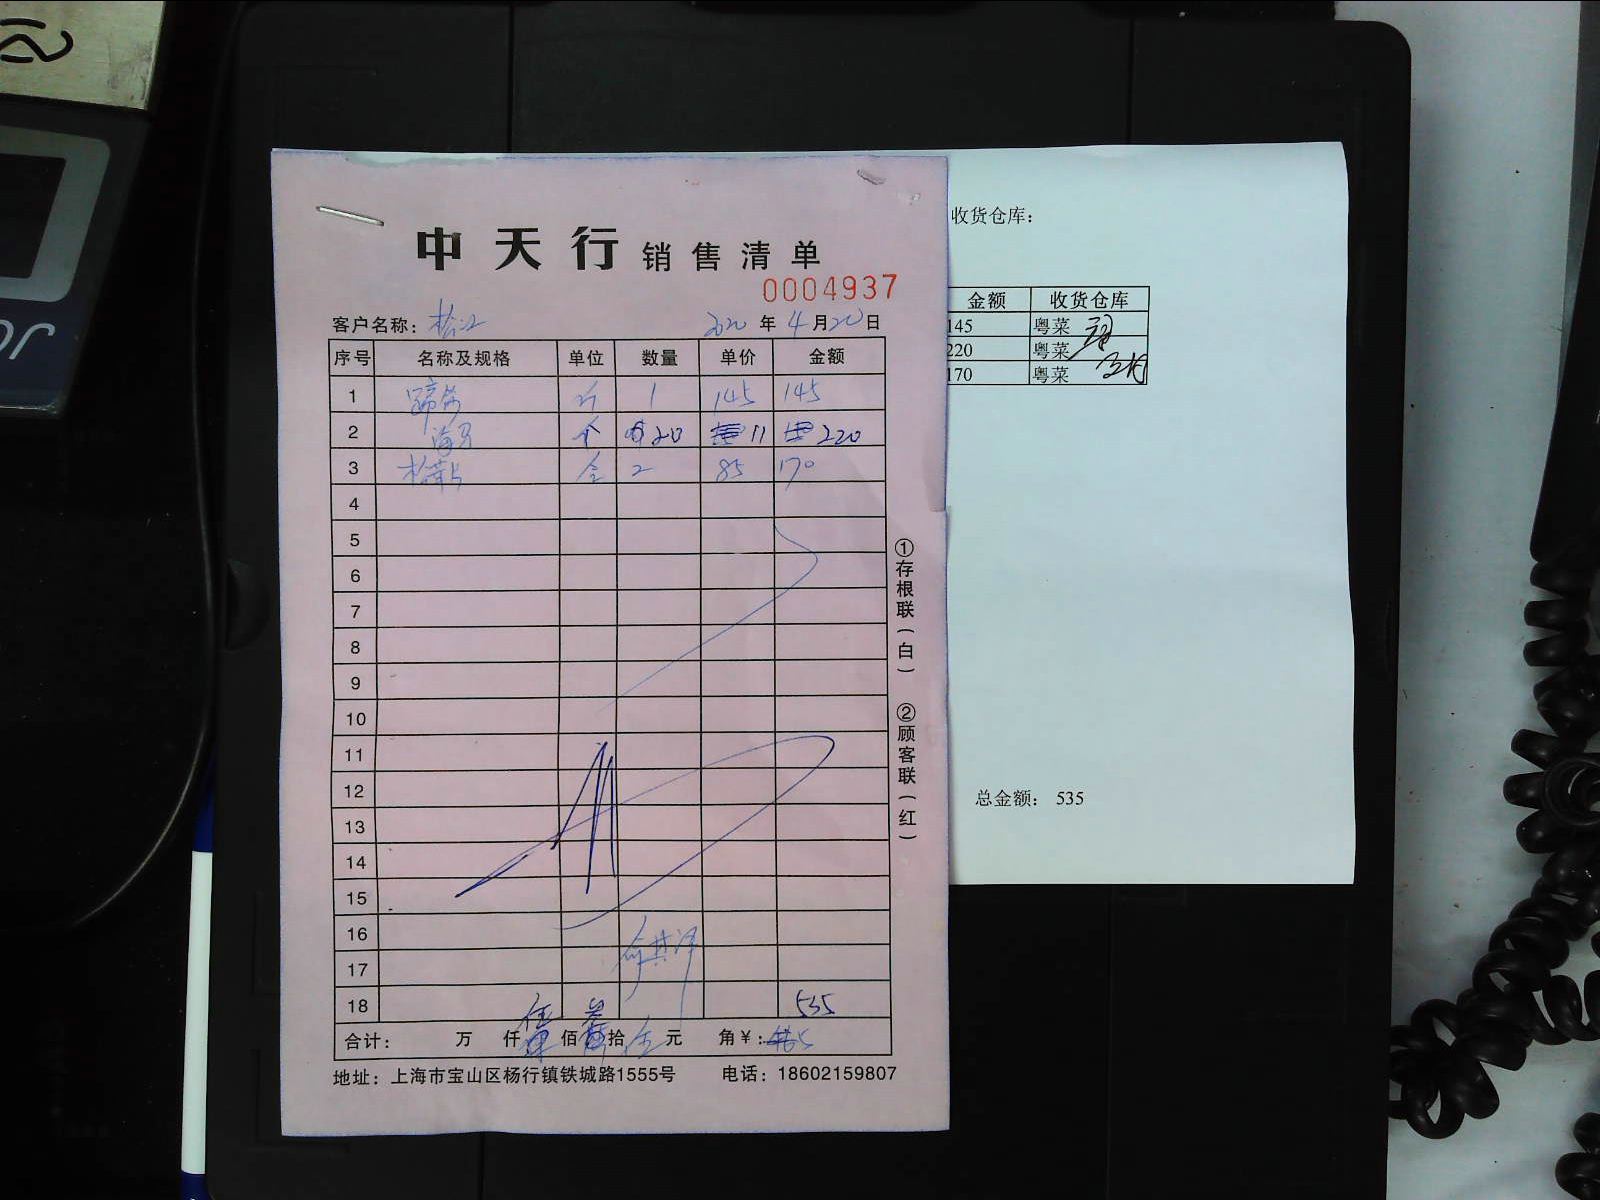 中天行 销售清单
0004937
客户名称: 松江 2020 年 4 月 20 日
序号 名称及规格 单位 数量 单价 金额
1 蹄筋 斤 1 145 145
2 海马 个 20 11 220
3 松茸片 2 85 170
4
5
6
7
8
9
10
11
12
13
14
15
16
17
18 535
合计: 万 仟 伍 佰 叁 拾 伍 元 角 ¥:
地址: 上海市宝山区杨行镇铁城路1555号 电话: 18602159807
①存根联(白) ②顾客联(红)
收货仓库:
金额 收货仓库
145 粤菜
220 粤菜
170 粤菜
总金额: 535